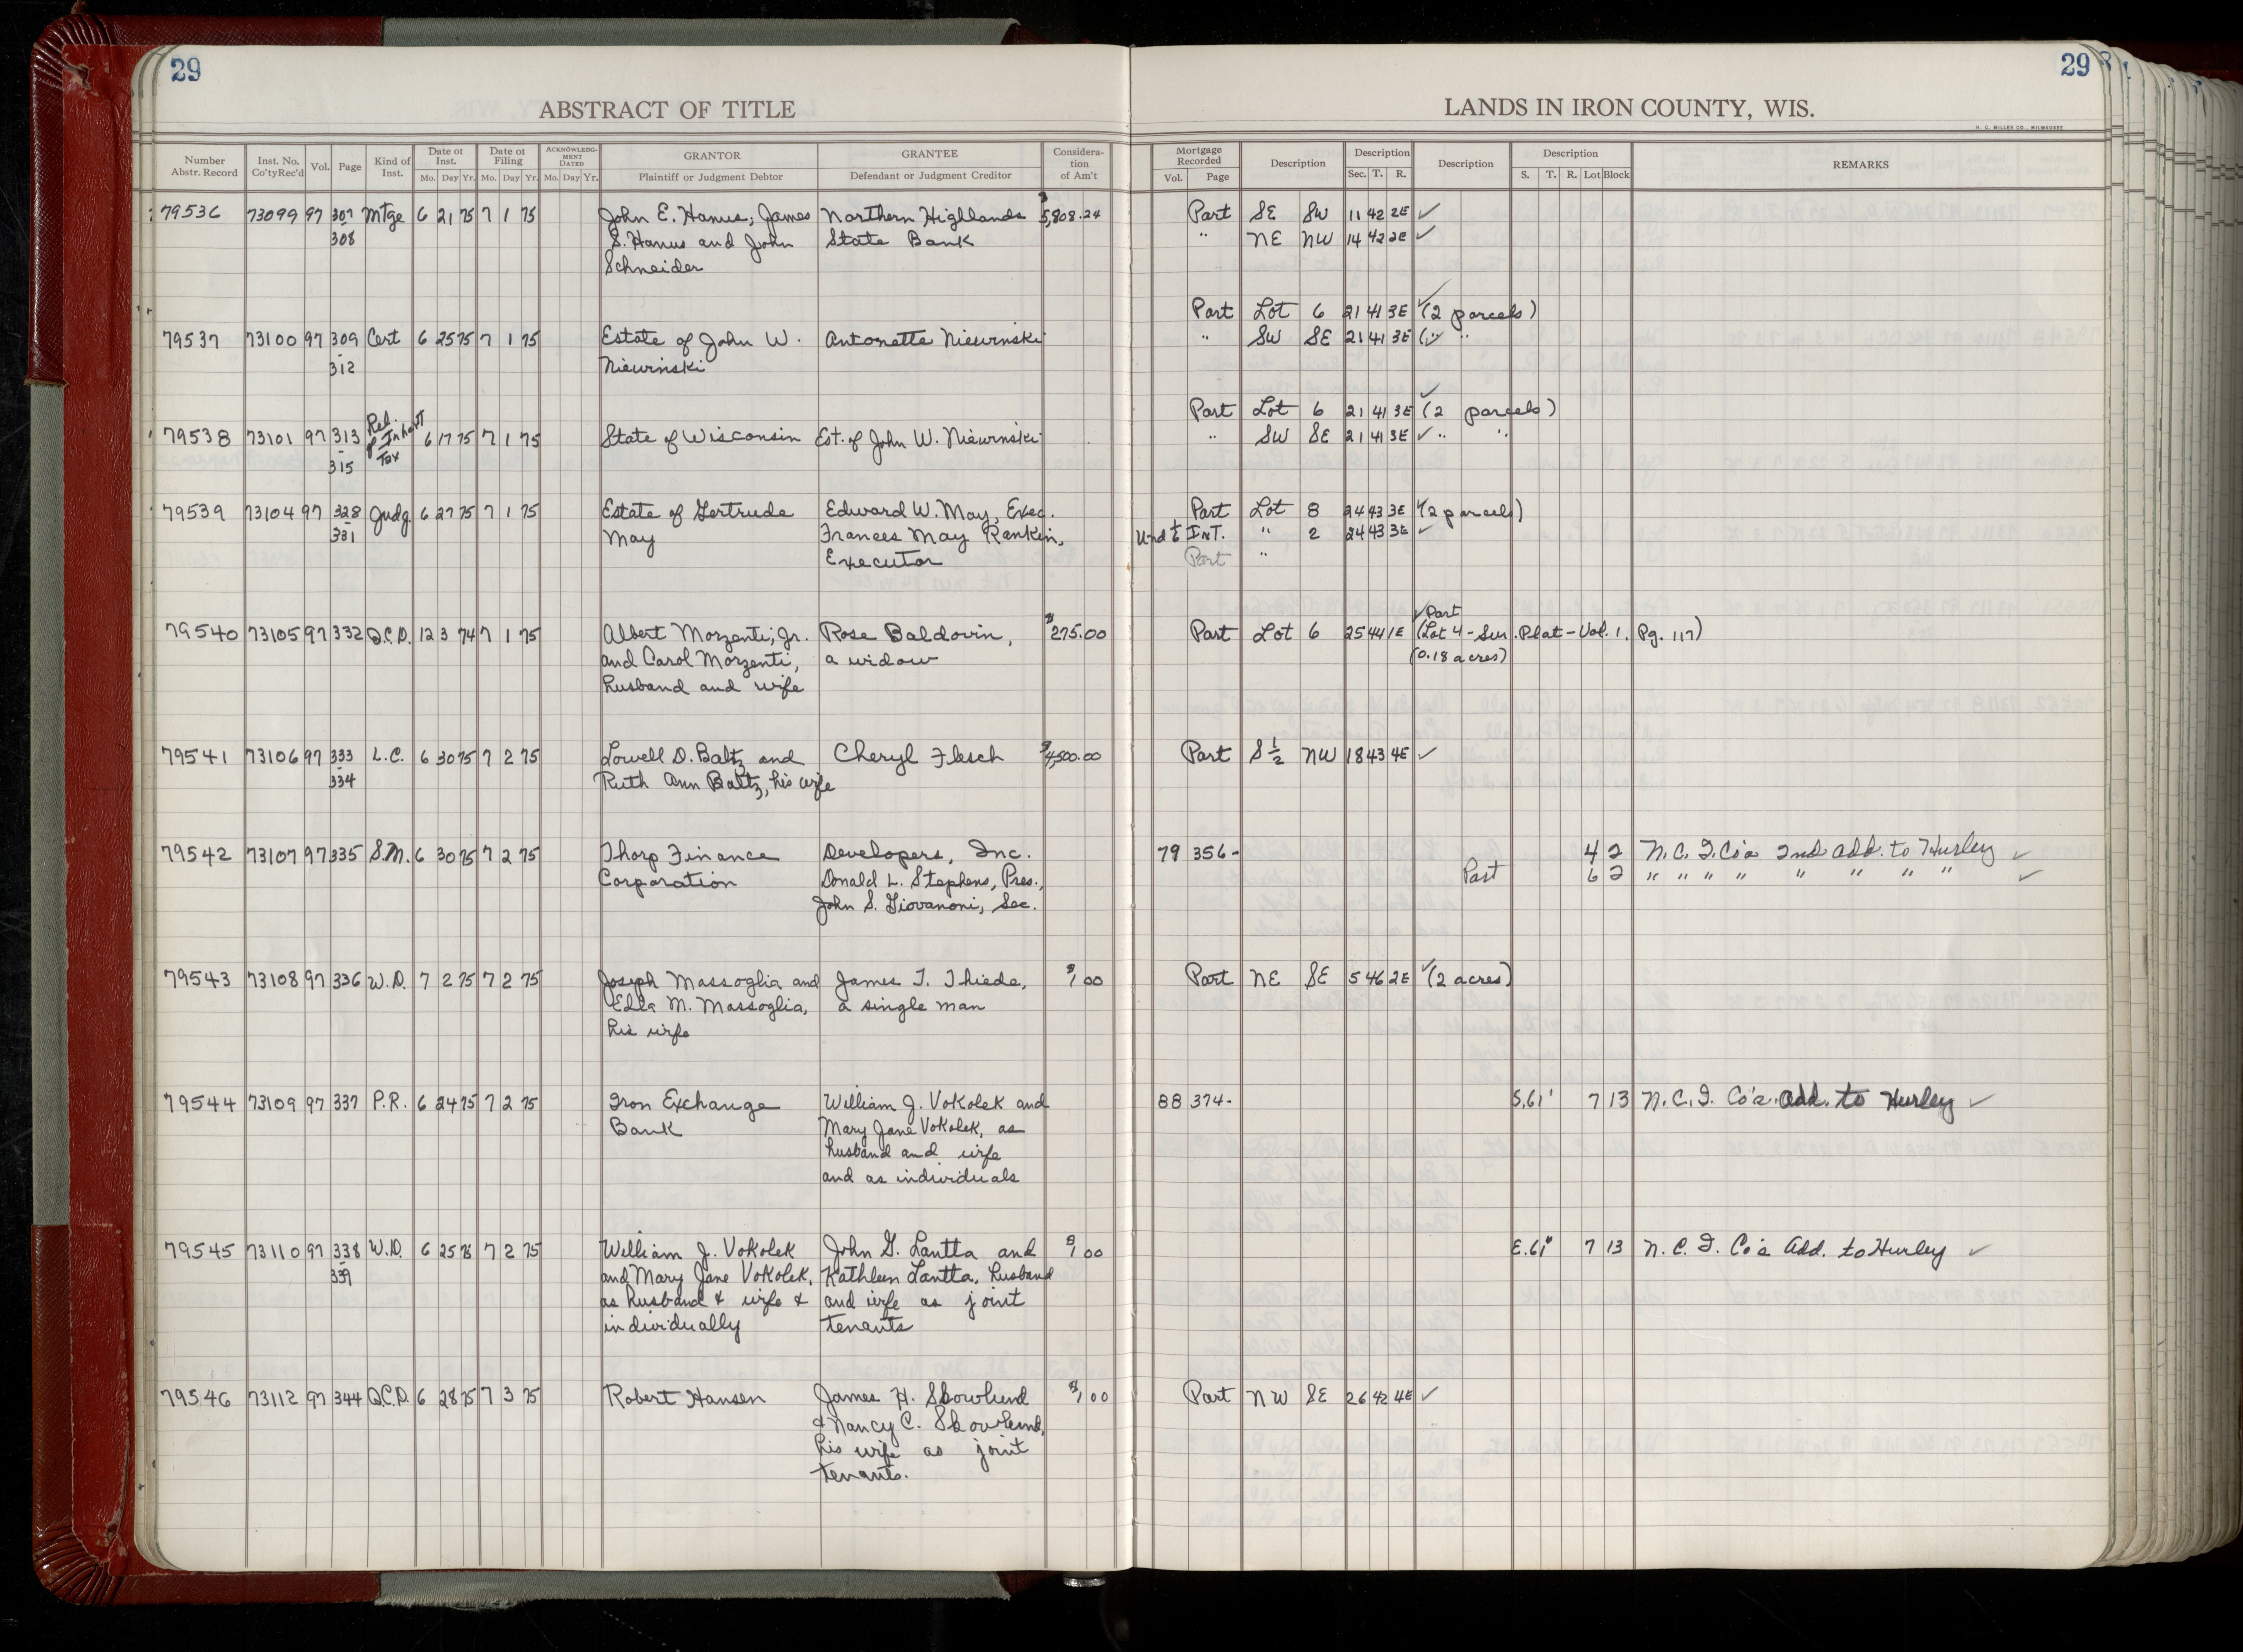 29
29
ABSTRACT OF TITLE
LANDS IN IRON COUNTY, WIS.
H. C. MILLER CO., MILWAUKEE
Number Abstr. Record | Inst. No. Co'ty Rec'd | Vol. | Page | Kind of Inst. | Date of Inst. Mo. Day Yr. | Date of Filing Mo. Day Yr. | ACKNOWLEDGMENT DATED Mo. Day Yr. | GRANTOR Plaintiff or Judgment Debtor | GRANTEE Defendant or Judgment Creditor | Consideration of Am't | Mortgage Recorded Vol. Page | Description | Description Sec. T. R. | Description | Description S. T. R. Lot Block | REMARKS
79536 73099 97 307 Mtge 6 21 75 7 1 75 John E. Hanus; James Northern Highlands $5,808.24 Part SE SW 11 42 2E ✓
308 S. Hanus and John State Bank " NE NW 14 42 2E ✓
Schneider
Part Lot 6 21 41 3E ✓ (2 parcels)
79537 73100 97 309 Cert 6 25 75 7 1 75 Estate of John W. Antonette Niewinski " SW SE 21 41 3E (" "
- 312 Niewinski
Part Lot 6 21 41 3E ✓ (2 parcels)
79538 73101 97 313 Rel. of Inherit Tax 6 17 75 7 1 75 State of Wisconsin Est. of John W. Niewinski " SW SE 21 41 3E ✓ " "
- 315
79539 73104 97 328 Judg. 6 27 75 7 1 75 Estate of Gertrude Edward W. May, Exec. Part Lot 8 24 43 3E ✓ (2 parcels)
- 331 May Frances May Rankin, Und INT. " 2 24 43 3E ✓
Executor Part "
✓ Part
79540 73105 97 332 Q.C.D. 12 3 74 7 1 75 Albert Morzenti, Jr. Rose Baldovin, $275.00 Part Lot 6 25 44 1E (Lot 4 - Sur. Plat - Vol. 1, Pg. 117)
and Carol Morzenti, a widow (0.18 acres)
husband and wife
79541 73106 97 333 L.C. 6 30 75 7 2 75 Lowell D. Baltz and Cheryl Flesch $4,500.00 Part S ½ NW 18 43 4E ✓
334 Ruth Ann Baltz, his wife
79542 73107 97 335 S.M. 6 30 75 7 2 75 Thorp Finance Developers, Inc. 79 356- 4 2 N. C. I. Co's 2nd add. to Hurley ✓
Corporation Donald L. Stephens, Pres., Part 6 2 " " " " " " " " ✓
John S. Giovanoni, Sec.
79543 73108 97 336 W.D. 7 2 75 7 2 75 Joseph Massoglia and James T. Thiede, $1 00 Part NE SE 5 46 2E ✓ (2 acres)
Ella M. Massoglia, a single man
his wife
79544 73109 97 337 P.R. 6 24 75 7 2 75 Iron Exchange William J. Vokolek and 88 374- S.61' 7 13 N. C. I. Co's. Add. to Hurley ✓
Bank Mary Jane Vokolek, as
husband and wife
and as individuals
79545 73110 97 338 W.D. 6 25 75 7 2 75 William J. Vokolek John G. Lantta and $1 00 E.61' 7 13 N. C. I. Co's Add. to Hurley ✓
- 339 and Mary Jane Vokolek, Kathleen Lantta, husband
as husband & wife & and wife as joint
individually tenants
79546 73112 97 344 Q.C.D. 6 28 75 7 3 75 Robert Hansen James H. Skowlund $1 00 Part NW SE 26 42 4E ✓
& Nancy C. Skowlund,
his wife as joint
tenants.